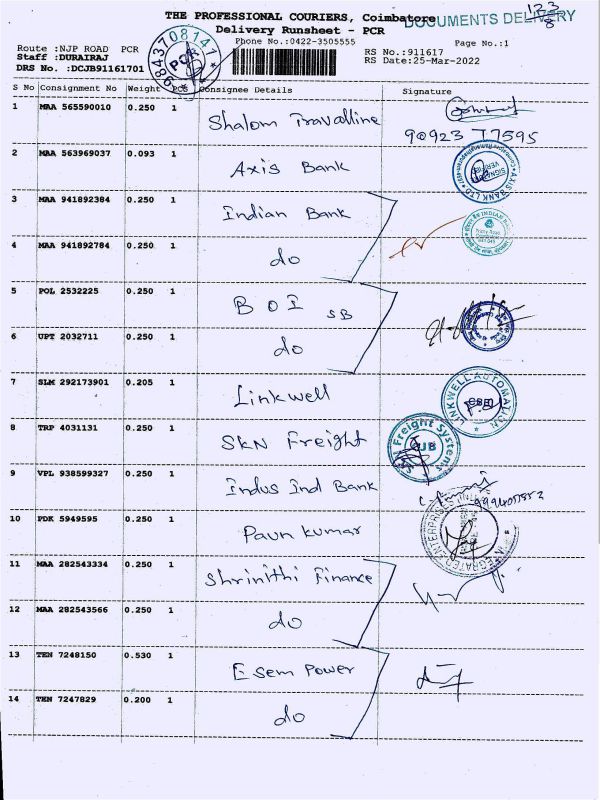 THE PROFESSIONAL COURIERS, Coimbatore
DOCUMENTS DELIVERY
Delivery Runsheet - PCR
Phone No.:0422-3505555
Page No.:1
Route :NJP ROAD PCR
RS No.:911617
Staff :DURAIRAJ
RS Date:25-Mar-2022
DRS No. :DCJB91161701
9843708141
PCR
S No Consignment No Weight PCS Consignee Details Signature
1 MAA 565590010 0.250 1 Shalom Travalline
90923 77595
2 MAA 563969037 0.093 1 Axis Bank
AXIS BANK LTD
3 MAA 941892384 0.250 1 Indian Bank
4 MAA 941892784 0.250 1 do
5 POL 2532225 0.250 1 BOI SB
6 UPT 2032711 0.250 1 do
7 SLM 292173901 0.205 1 Linkwell
LINKWELL AUTOMATION
8 TRP 4031131 0.250 1 SKN Freight
SKN Freight Systems
CJB
9 VPL 938599327 0.250 1 Indus Ind Bank
10 PDK 5949595 0.250 1 Pavn kumar
INTEGRATED ENTERPRISES
11 MAA 282543334 0.250 1 Shrinithi Finance
12 MAA 282543566 0.250 1 do
13 TEN 7248150 0.530 1 Esem Power
14 TEN 7247829 0.200 1 do